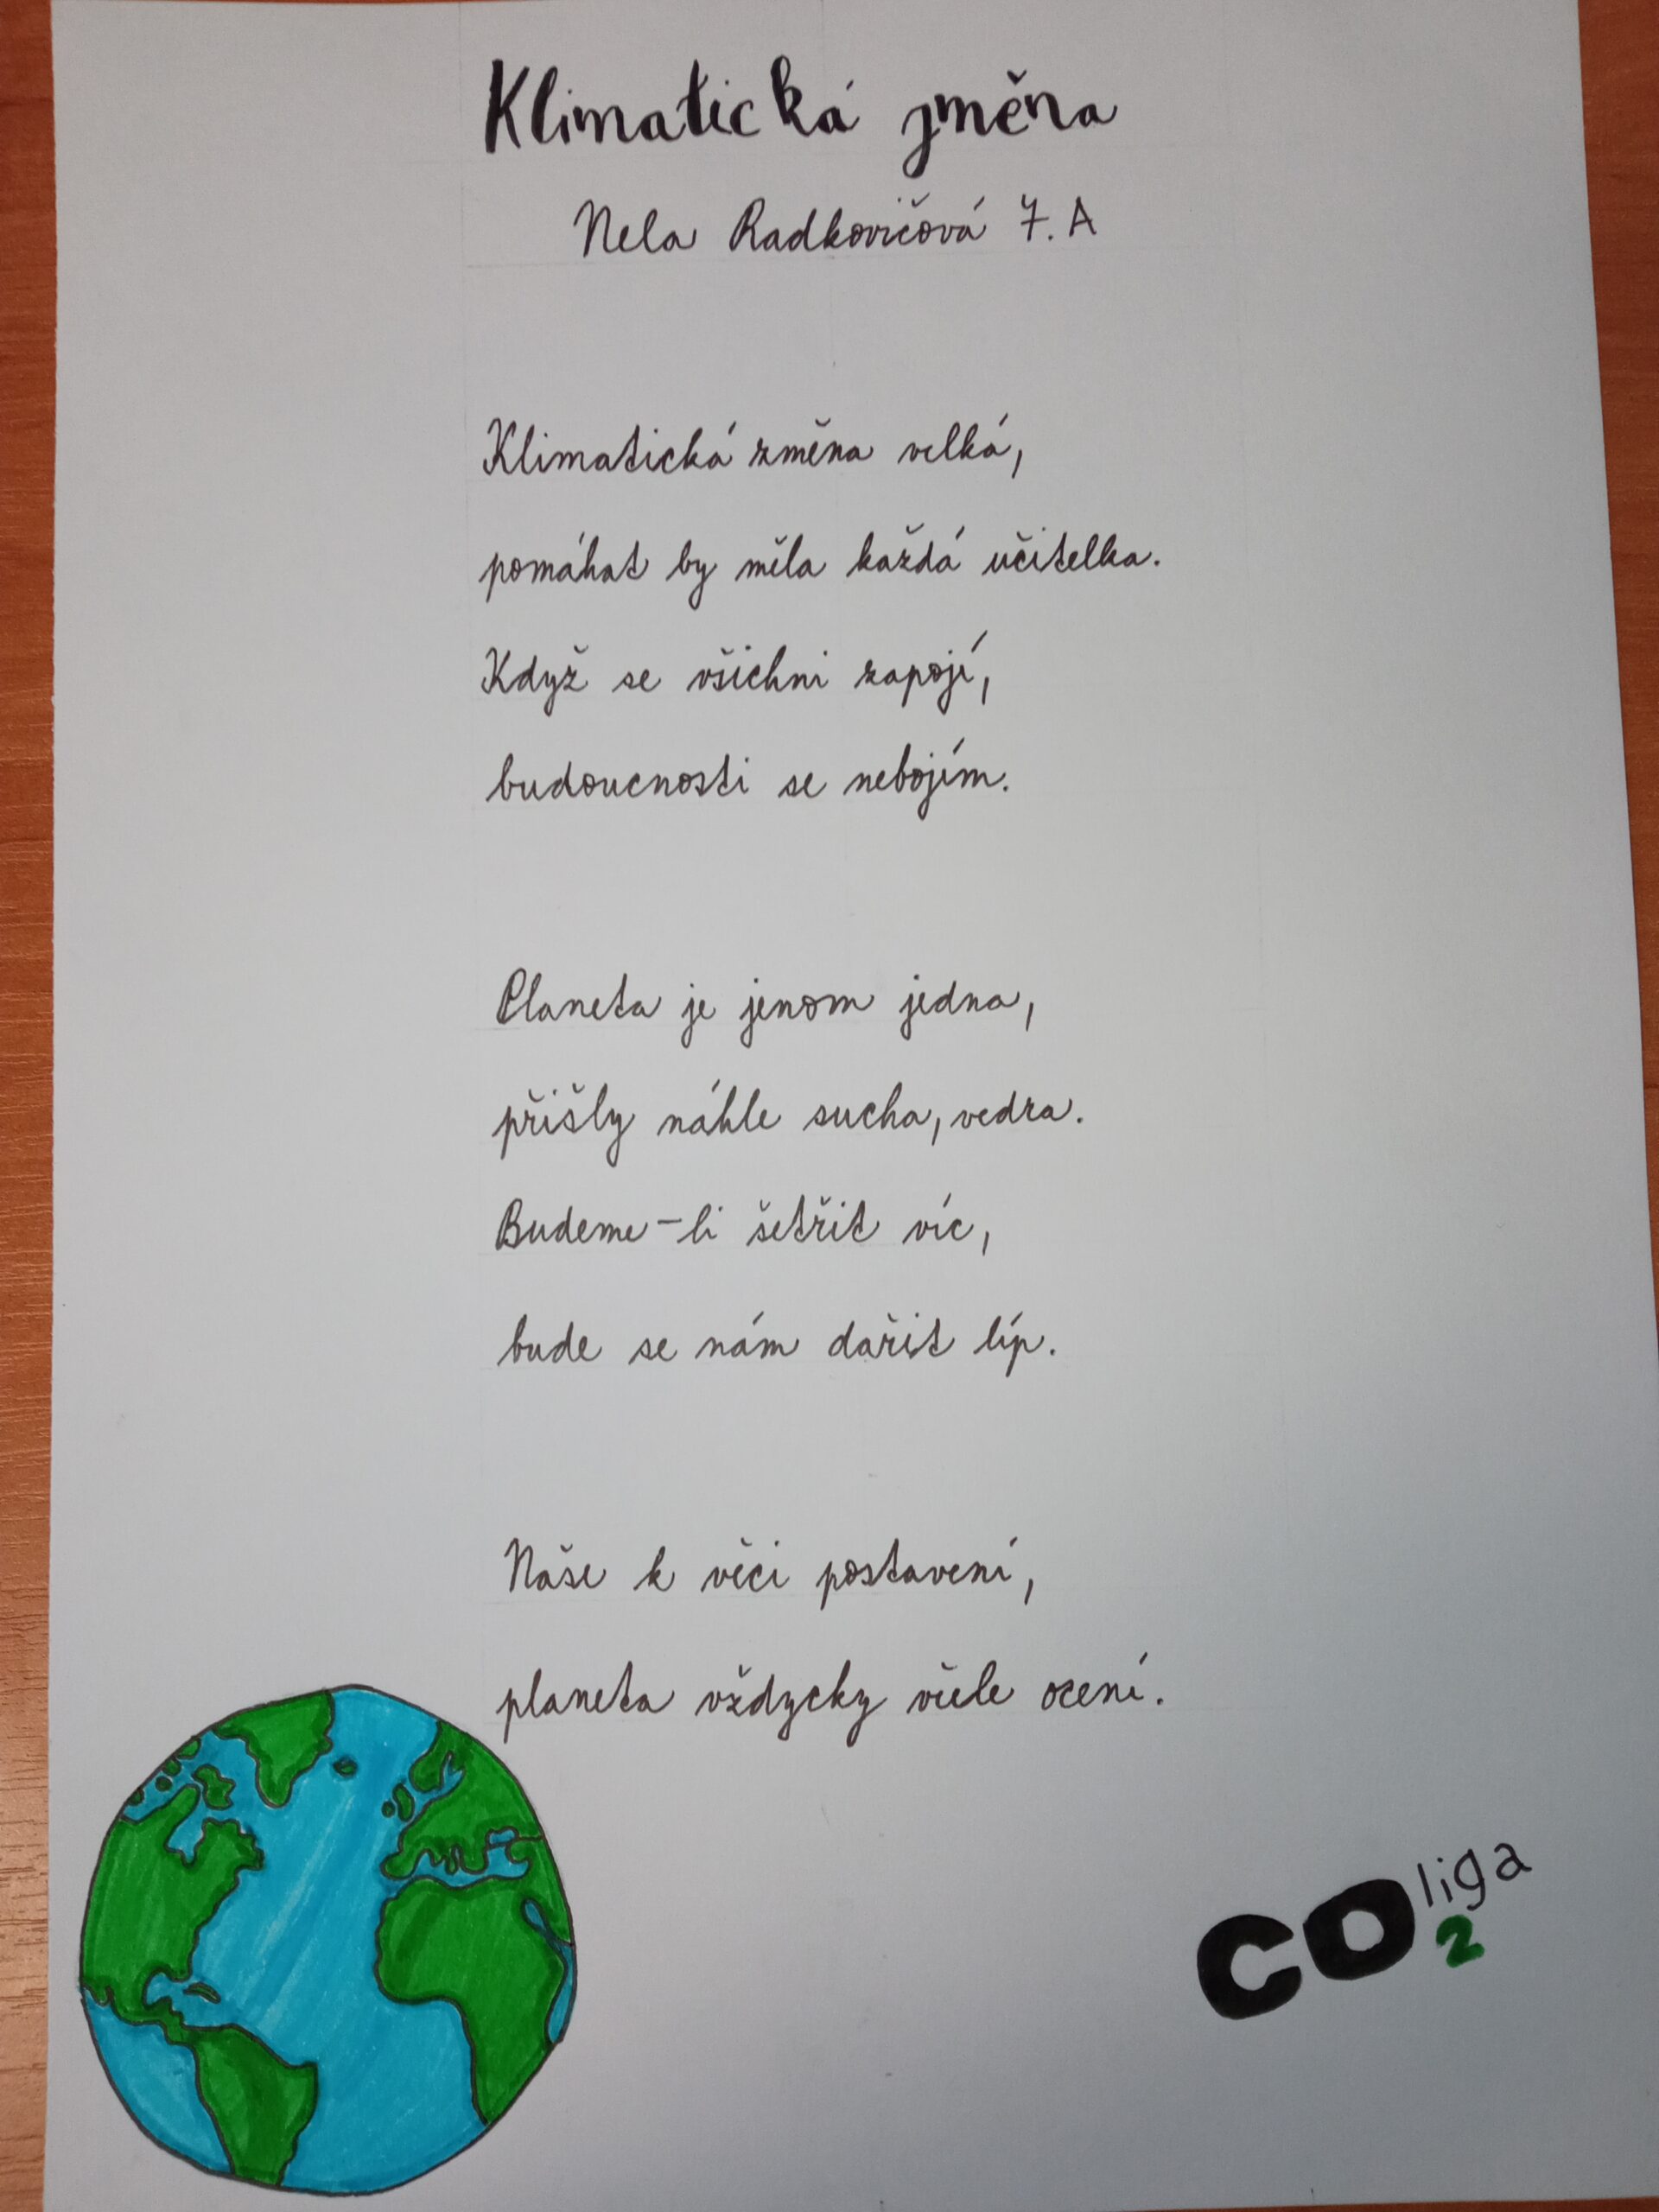 Klimatická změna
Nela Radkovičová 7. A
Klimatická změna velká,
pomáhat by měla každá učitelka.
Když se všichni zapojí,
budoucnosti se nebojím.
Planeta je jenom jedna,
přišly náhle sucha, vedra.
Budeme-li šetřit víc,
bude se nám dařit líp.
Naše k věci postavení,
planeta vždycky vřele ocení.
CO2 liga